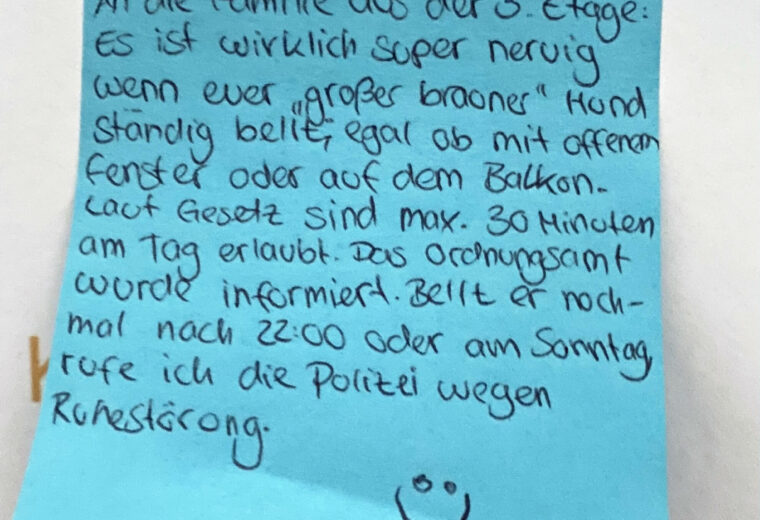 An die Familie aus der 3. Etage:
Es ist wirklich super nervig
wenn euer „großer brauner" Hund
ständig bellt, egal ob mit offenem
Fenster oder auf dem Balkon.
Laut Gesetz sind max. 30 Minuten
am Tag erlaubt. Das Ordnungsamt
wurde informiert. Bellt er noch-
mal nach 22:00 oder am Sonntag,
rufe ich die Polizei wegen
Ruhestörung.